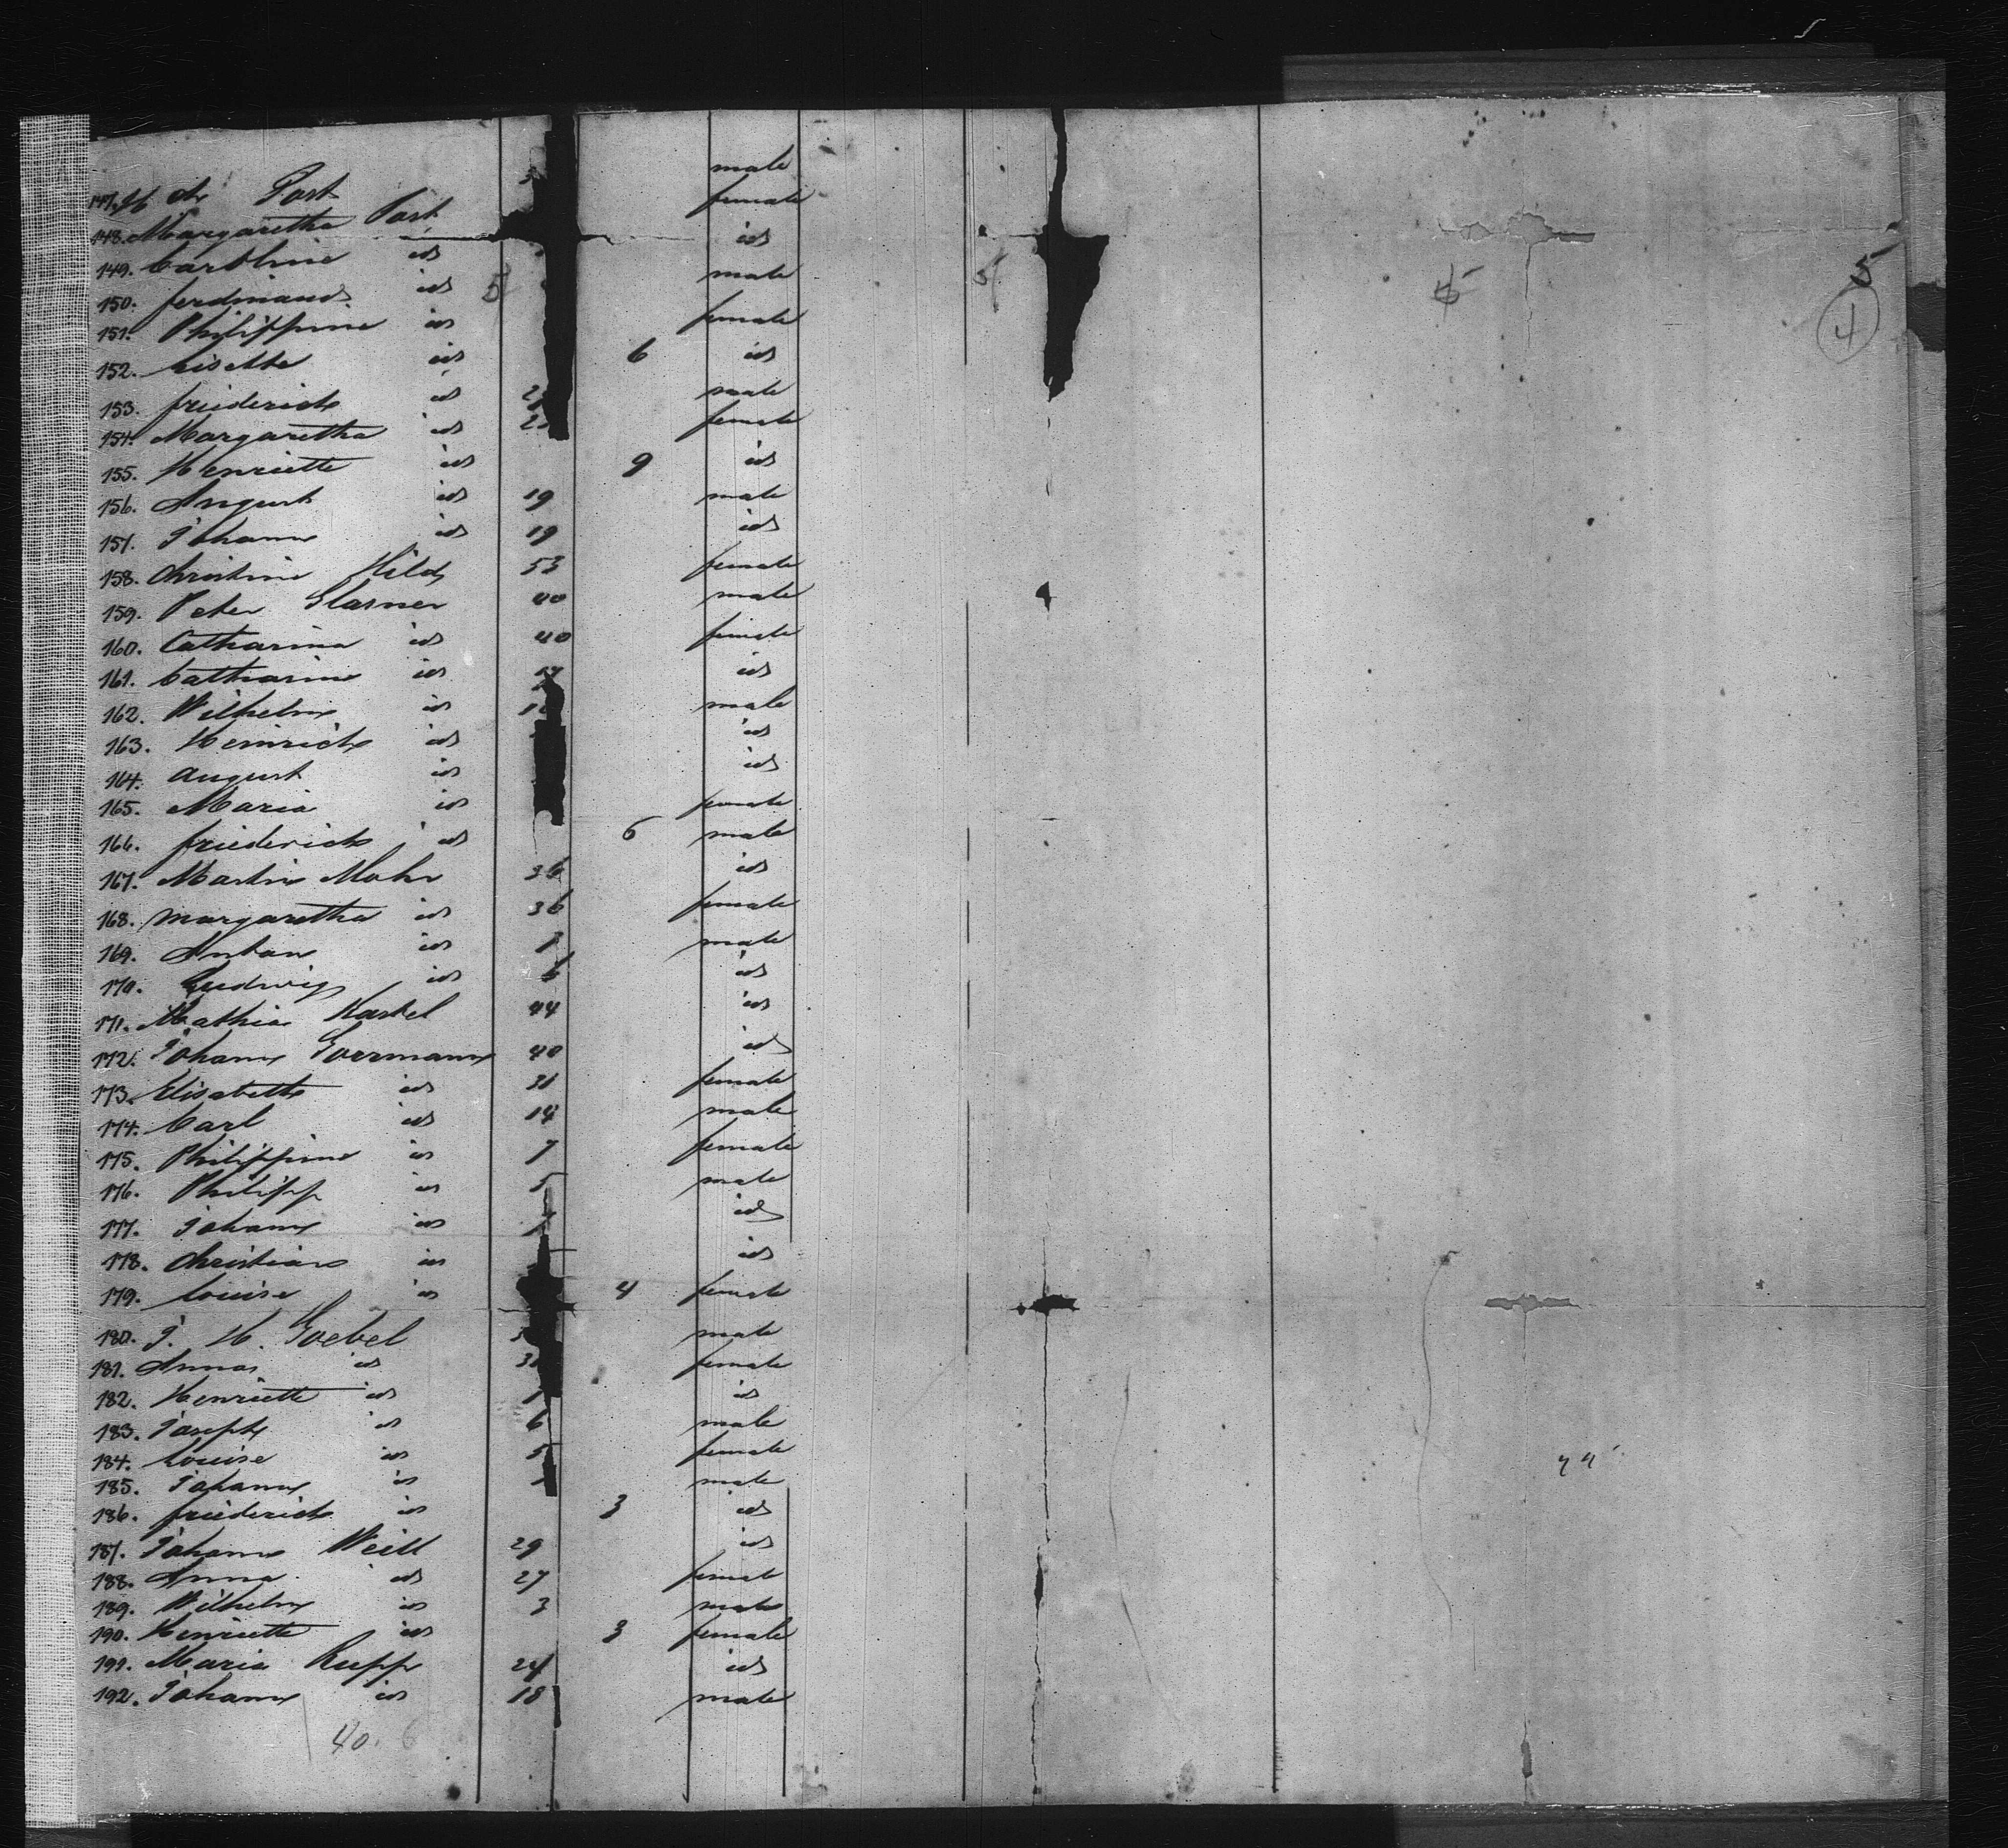 147. H Ch Post male
148. Margaretha Post female
149. Caroline id id
150. Ferdinand id male
151. Philippine id female
152. Lisette id 6 id
153. Friederich id male
154. Margaretha id female
155. Henriette id 9 id
156. August id 19 male
157. Johann id 19 id
158. Christine Hild 53 female
159. Peter Glasner 40 male
160. Catharina id 40 female
161. Catharine id 17 id
162. Wilhelm id male
163. Heinrich id id
164. August id id
165. Maria id female
166. Friederich id 6 male
167. Martin Mohr 36 id
168. Margaretha id 36 female
169. Anton id male
170. Ludwig id 6 id
171. Mathias Kastel 44 id
172. Johann Goermann 40 id
173. Elisabeth id 31 female
174. Carl id 14 male
175. Philippine id 7 female
176. Philipp id 5 male
177. Johann id id
178. Christian id id
179. Louise id 4 female
180. J. H. Goebel male
181. Anna id female
182. Henriette id id
183. Joseph id 6 male
184. Louise id 5 female
185. Johann id male
186. Friederich id 3 id
187. Johann Weill 29 id
188. Anna id 27 female
189. Wilhelm id 3 male
190. Henriette id 3 female
191. Maria Rupp 24 id
192. Johann id 18 male
40. 6
5
4